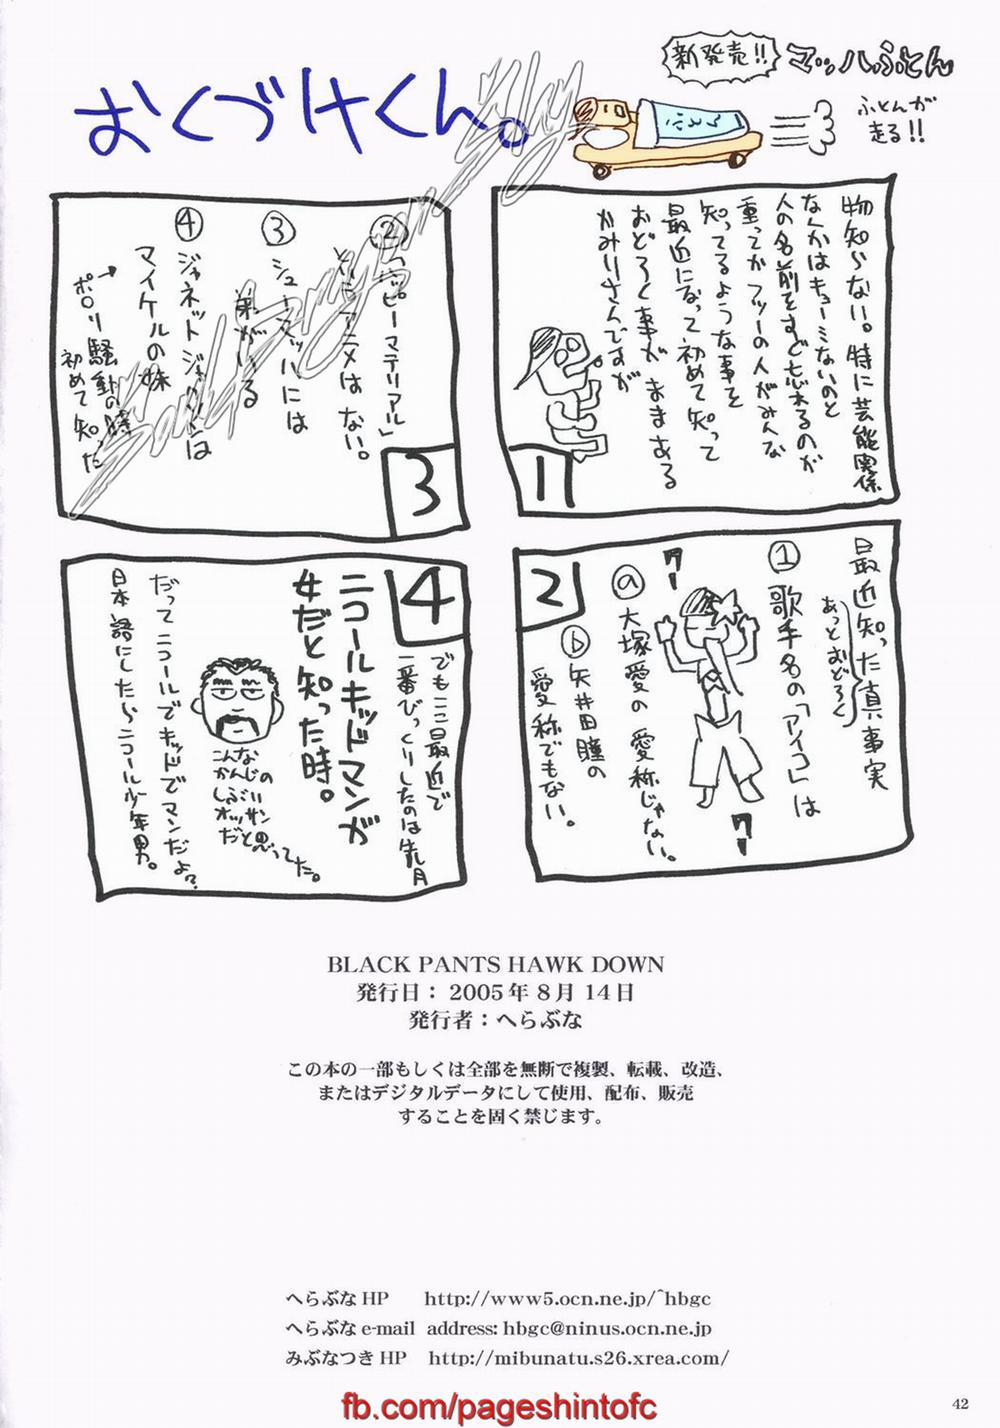 おくづけくん。
新発売!!
マッハふとん
ふとんが
走る!!
ふとん
物知らない。特に芸能関係
なんかはキョーミないのと
人の名前をすぐ忘れるのが
重ってかフツーの人がみんな
知ってるような事を
最近になって初めて知って
おどろく事がままある
かみりさんですが
1
最近知った真実
あっとおどろく
① 歌手名の「アイコ」は
ⓐ 大塚愛の愛称じゃない。
ⓑ 矢井田瞳の
愛称でもない。
クー
クー
2
② 「ハッピーマテリアル」
というアニメはない。
③ シューマッハには
弟がいる
④ ジャネットジャクソンは
マイケルの妹
→ポロリ騒動の時
初めて知った
3
4
でもここ最近で
一番びっくりしたのは先月
ニコールキッドマンが
女だと知った時。
こんな
かんじの
しぶい
オッサン
だと思ってた。
だってニコールでキッドでマンだよ?
日本語にしたらニコール少年男。
BLACK PANTS HAWK DOWN
発行日：2005年8月14日
発行者：へらぶな
この本の一部もしくは全部を無断で複製、転載、改造、
またはデジタルデータにして使用、配布、販売
することを固く禁じます。
へらぶな HP http://www5.ocn.ne.jp/~hbgc
へらぶな e-mail address: hbgc@ninus.ocn.ne.jp
みぶなつき HP http://mibunatu.s26.xrea.com/
fb.com/pageshintofc
42